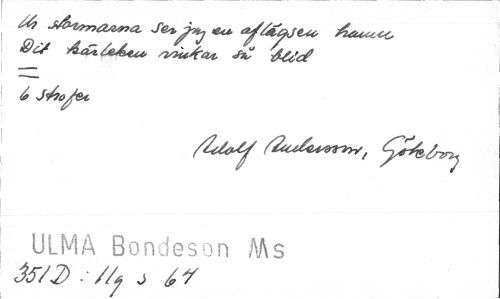 Ur stormarna ser jag en aflägsen hamn
Dit kärleken vinkar så blid
=
6 strofer
Adolf Andersson, Göteborg
ULMA Bondeson Ms
351D : 11g s 64